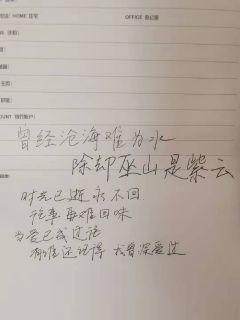 HOME 住宅 OFFICE 办公室
曾经沧海难为水
除却巫山是紫云
时光已逝永不回
往事要难回味
为爱已成过语
有谁还记得 我曾深爱过